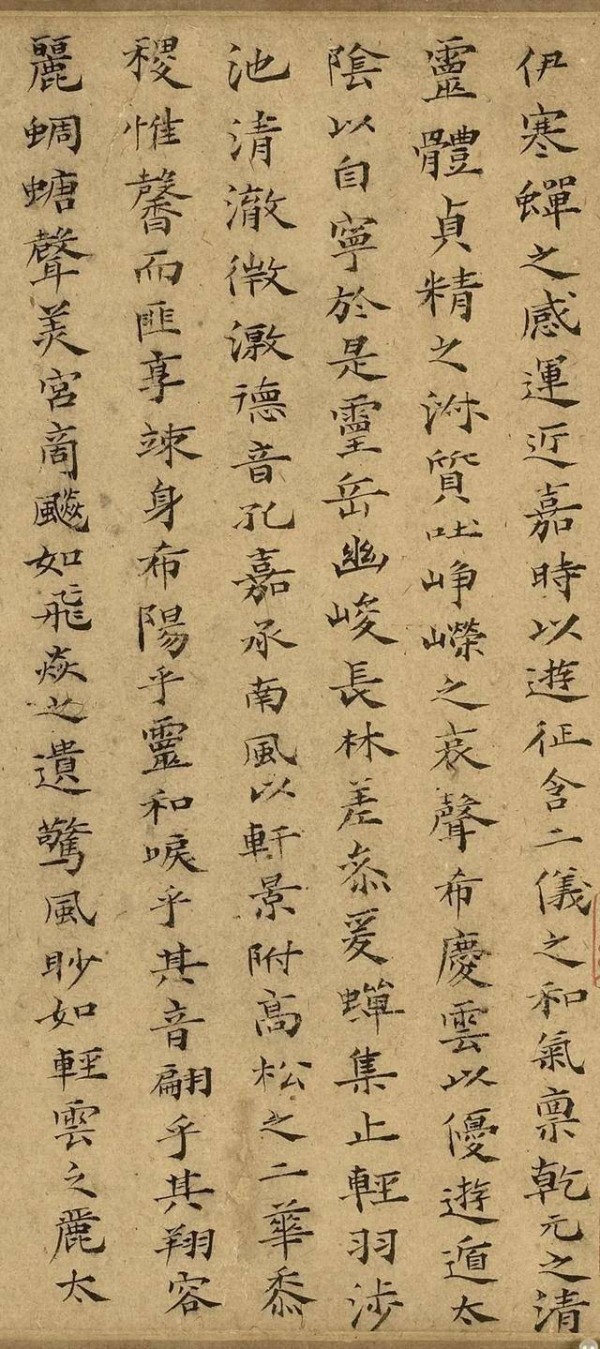 伊寒蟬之感運近嘉時以遊征含二儀之和氣稟乾元之清
靈體貞精之淑質吐崢嶸之哀聲希慶雲以優遊遁太
陰以自寧於是靈岳幽峻長林差叅爰蟬集止輕羽涉
池清澈微激德音孔嘉承南風以軒景附高松之二華黍
稷惟馨而匪享竦身希陽乎靈和唳乎其音翩乎其翔容
麗蜩螗聲美宮商飈如飛焱之遺驚風眇如輕雲之麗太